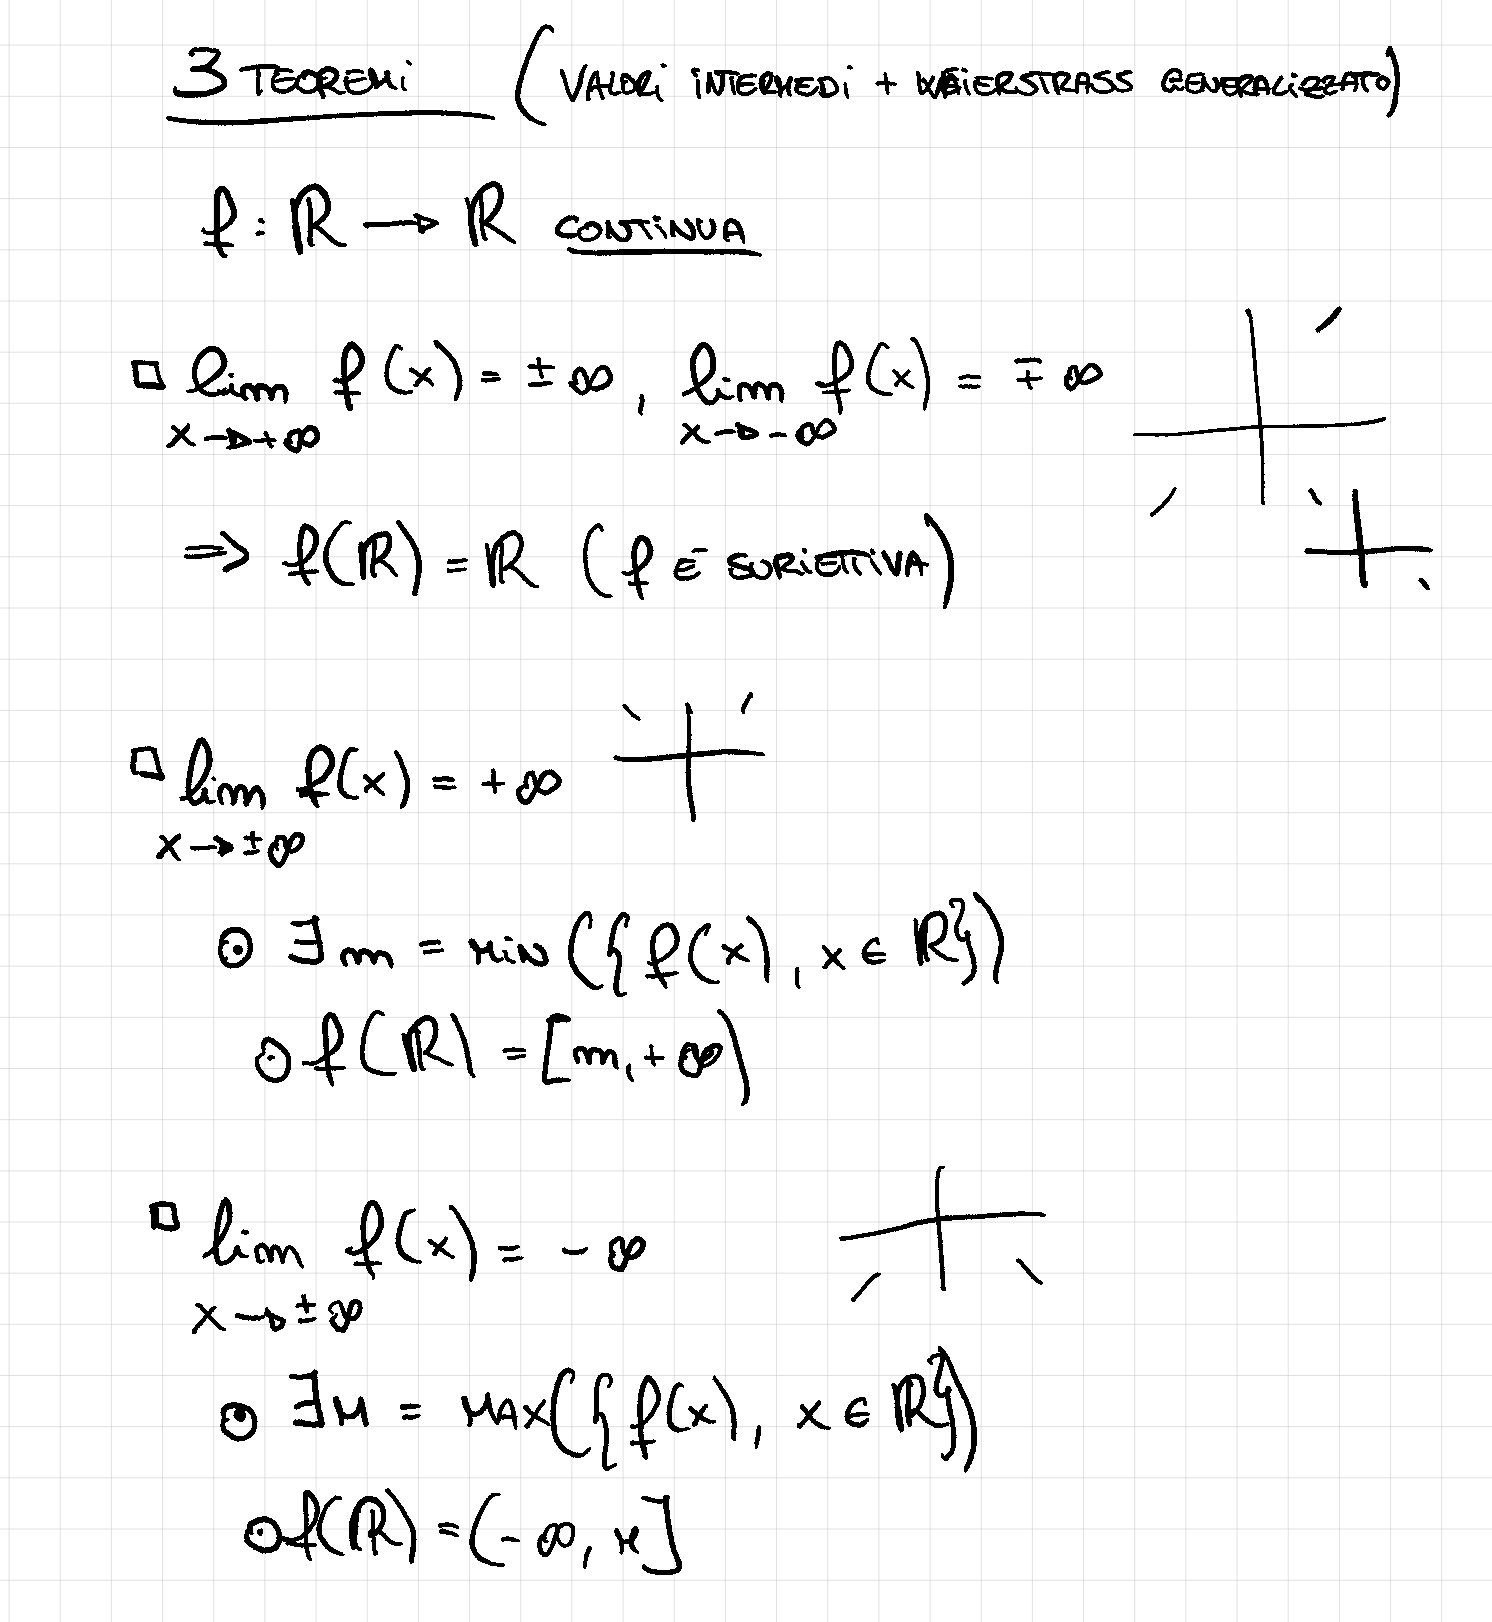 3 TEOREMi (VALORi iNTERMEDi + WEiERSTRASS GENERALiZZATO)
f : ℝ → ℝ CONTiNUA
□ lim f(x) = ± ∞ , lim f(x) = ∓ ∞
x → +∞ x → -∞
⇒ f(ℝ) = ℝ (f E¯ SURiETTiVA)
□ lim f(x) = + ∞
x → ±∞
⊙ ∃ m = MiN ({f(x), x ∈ ℝ})
⊙ f(ℝ) = [m, + ∞)
□ lim f(x) = - ∞
x → ± ∞
⊙ ∃ M = MAX({f(x), x ∈ ℝ})
⊙ f(ℝ) = (- ∞, M]